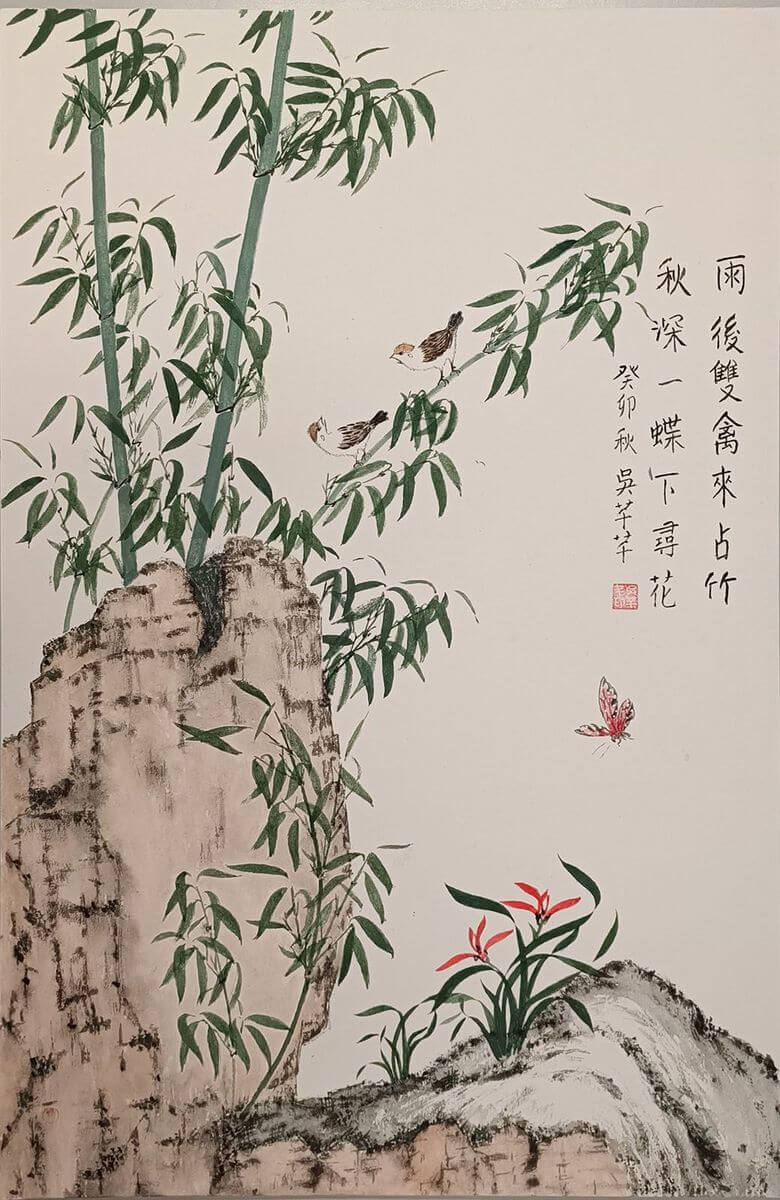 雨後雙禽來占竹
秋深一蝶下尋花
癸卯秋 吳芊芊